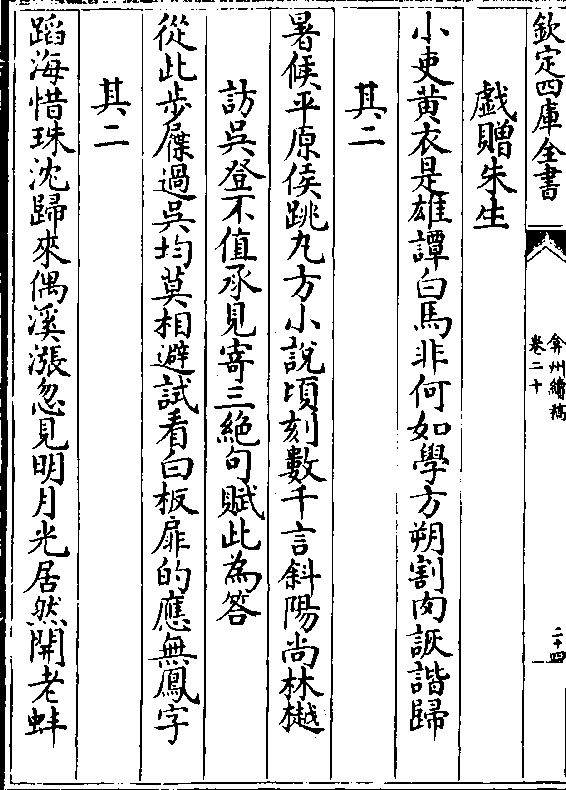 欽定四庫全書
弇州續稿
卷二十
二十四
戲贈朱生
小吏黄衣是雄譚白馬非何如學方朔割肉詼諧歸
其二
暑候平原侯跳丸方小說頃刻數千言斜陽尚林樾
訪吳登不值承見寄三絶句賦此為答
從此步屧過吳均莫相避試看白板扉的應無鳳字
其二
蹈海惜珠沈歸來偶溪漲忽見明月光居然開老蚌